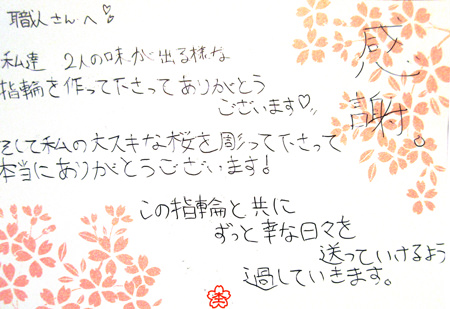 職人さんへ♡
感謝。
私達 2人の味が出る様な
指輪を作って下さってありがとう
ございます♡
そして私の大スキな桜を彫って下さって
本当にありがとうございます!
この指輪と共に
ずっと幸な日々を
送っていけるよう
過していきます。